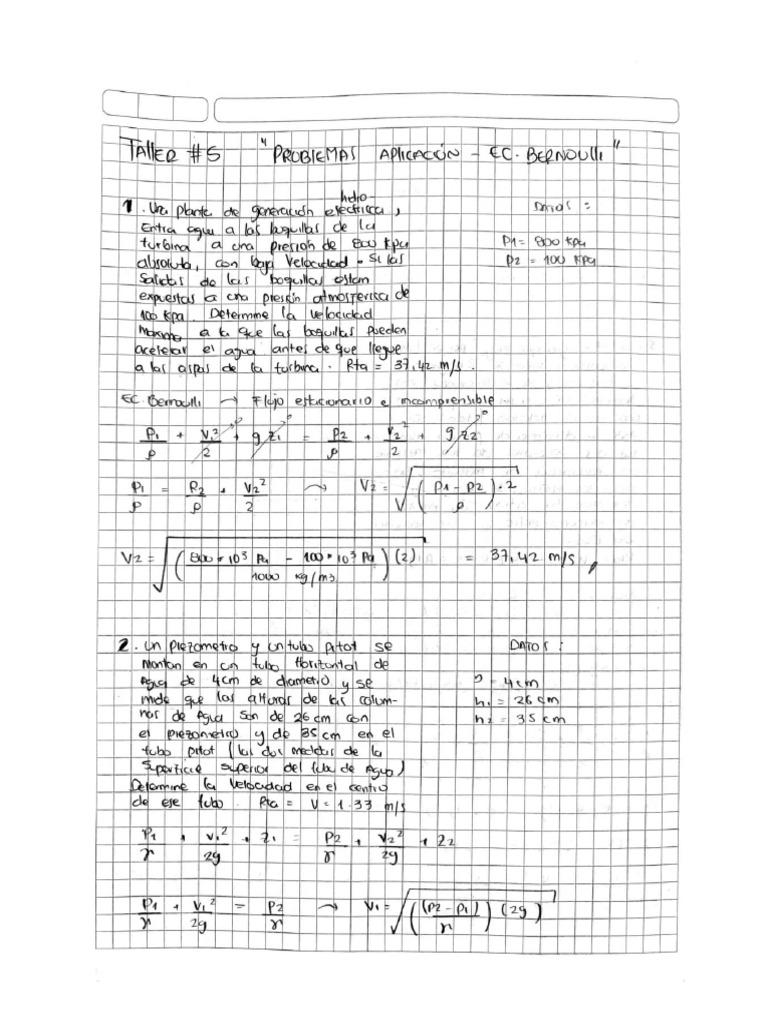 TALLER #5 "PROBLEMAS APLICACIÓN - EC. BERNOULLI"
1. Una planta de generación hidro-electrica,
Entra agua a las boquillas de la
turbina a una presion de 800 kpa
absoluta, con baja velocidad. Si las
Salidas de las boquillas estan
expuestas a una presión atmosferica de
100 Kpa. Determine la velocidad
maxima a la que las boquillas pueden
acelerar el agua antes de que llegue
a las aspas de la turbina. Rta = 37,42 m/s.
DATOS:
P1 = 800 kpa
P2 = 100 kpa
EC. Bernoulli → Flujo estacionario e incomprensible
P1/ρ + V1²/2 + gz1 = P2/ρ + V2²/2 + gz2
P1/ρ = P2/ρ + V2²/2 → V2 = √((P1-P2/ρ)·2)
V2 = √((800*10³ Pa - 100*10³ Pa/1000 kg/m3)(2)) = 37,42 m/s
2. Un piezometro y un tubo pitot se
montan en un tubo Horizontal de
Agua de 4cm de diametro y se
mide que las alturas de las colum-
nas de Agua son de 26 cm con
el piezometro y de 35 cm en el
tubo pitot (las dos medidas de la
Superficie superior del tubo de Agua)
Determine la velocidad en el centro
de ese tubo. Rta = V = 1.33 m/s
DATOS:
D = 4cm
h1 = 26 cm
h2 = 35 cm
P1/γ + V1²/2g + z1 = P2/γ + V2²/2g + z2
P1/γ + V1²/2g = P2/γ → V1 = √(((P2-P1)/γ)(2g))